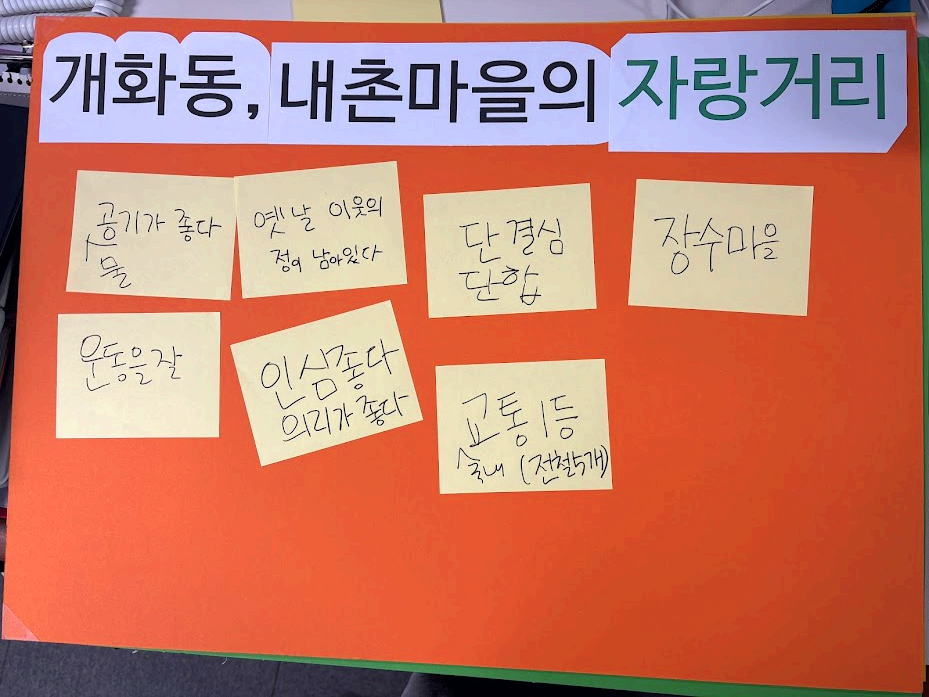 개화동, 내촌마을의 자랑거리
공기가 좋다
물
옛날 이웃의
정이 남아있다
단결심
단합
장수마을
운동을잘
인심좋다
의리가 좋다
교통 1등
국내 (전철5개)